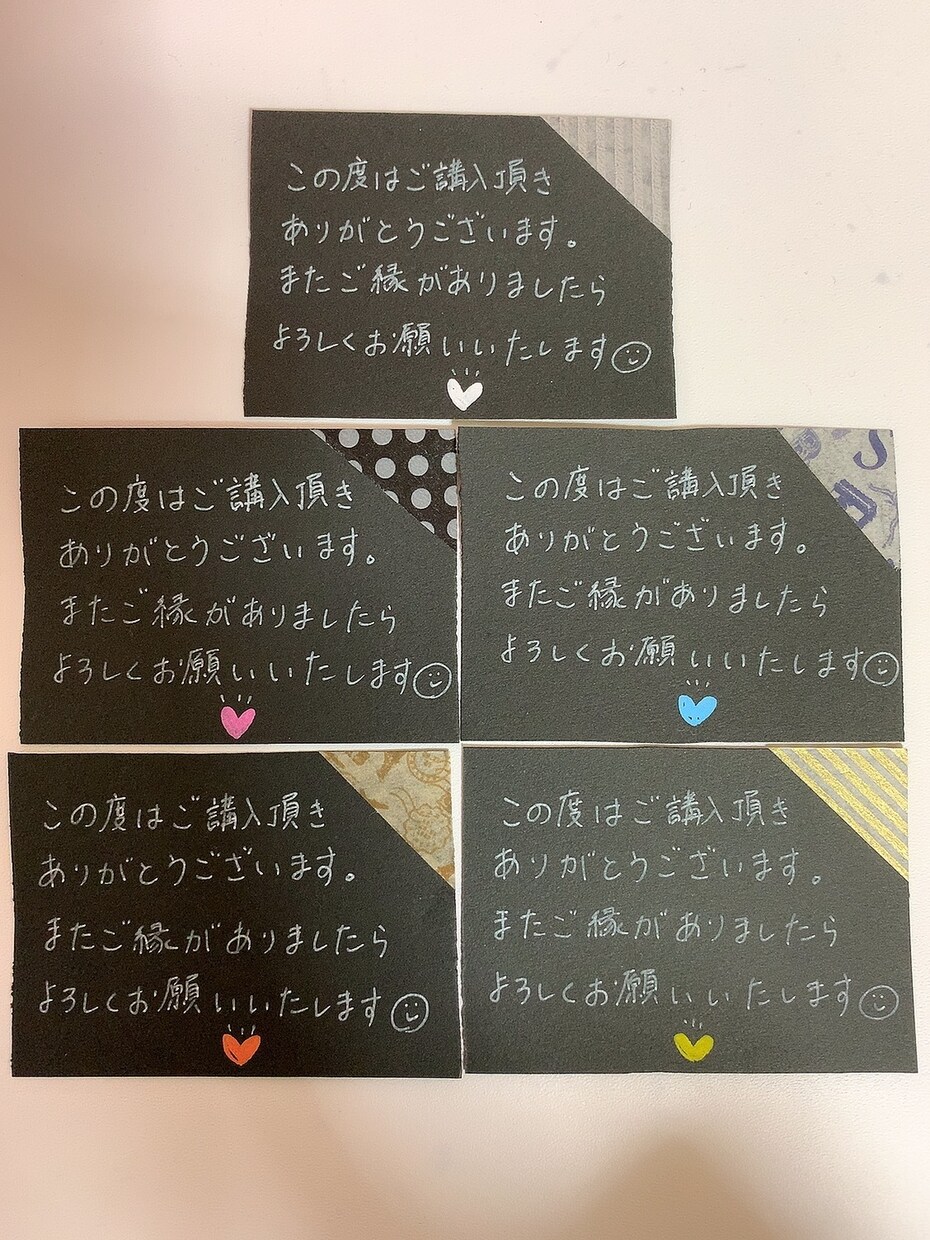 この度はご講入頂き
ありがとうございます。
またご縁がありましたら
よろしくお願いいたします
この度はご講入頂き
ありがとうございます。
またご縁がありましたら
よろしくお願いいたします
この度はご講入頂き
ありがとうございます。
またご縁がありましたら
よろしくお願いいたします
この度はご講入頂き
ありがとうございます。
またご縁がありましたら
よろしくお願いいたします
この度はご講入頂き
ありがとうございます。
またご縁がありましたら
よろしくお願いいたします